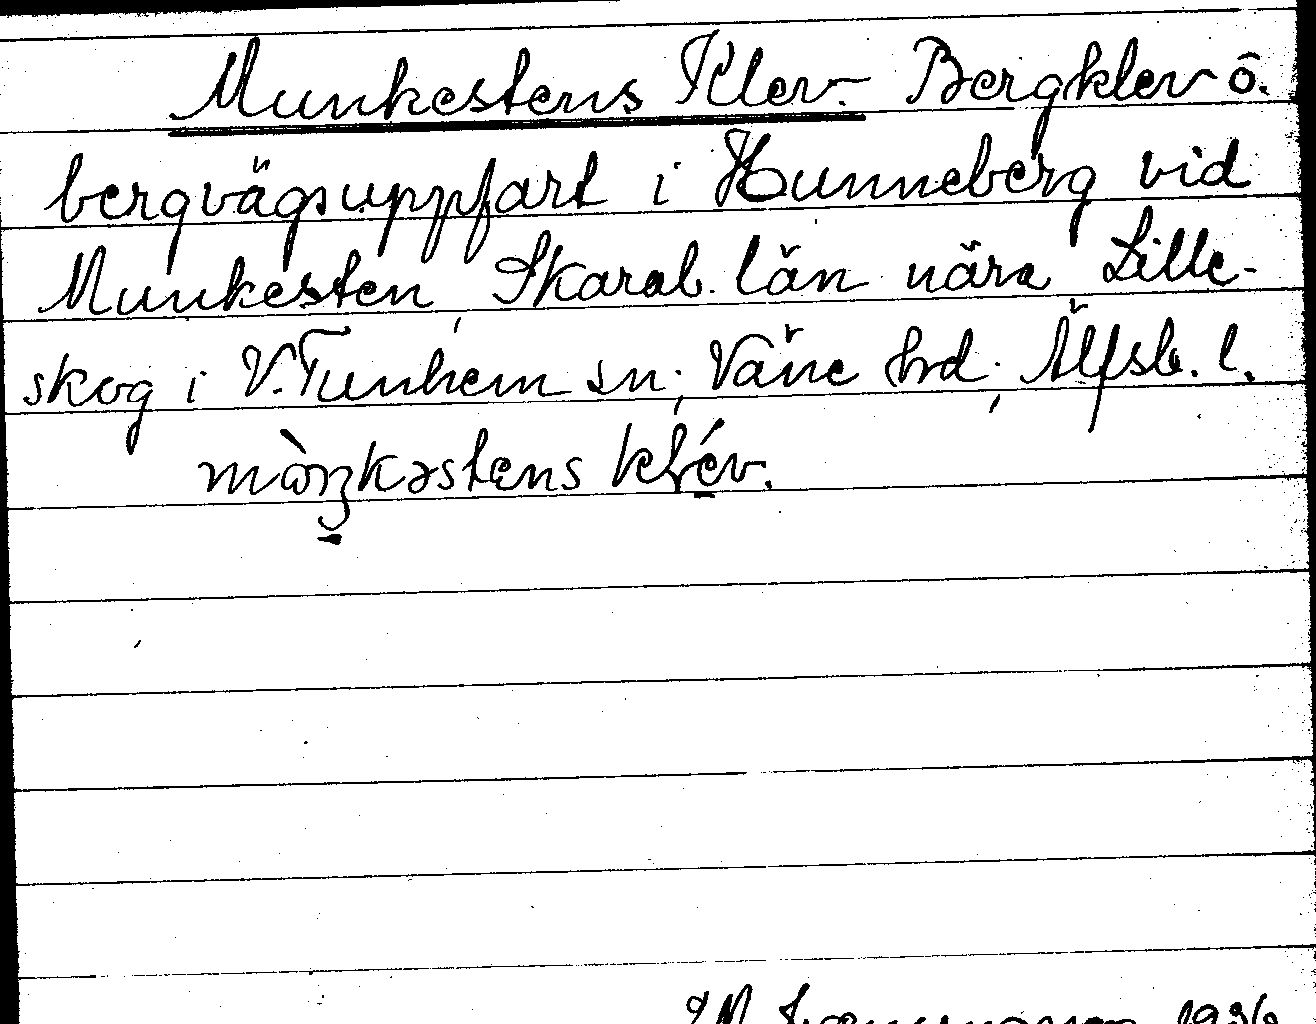 Munkestens Klev. Bergklev o.
bergvägsuppfart i Hunneberg vid
Munkesten, Skarab. län nära Lille-
skog i V. Tunhem sn; Väne hrd; Älfsb. l.
1936